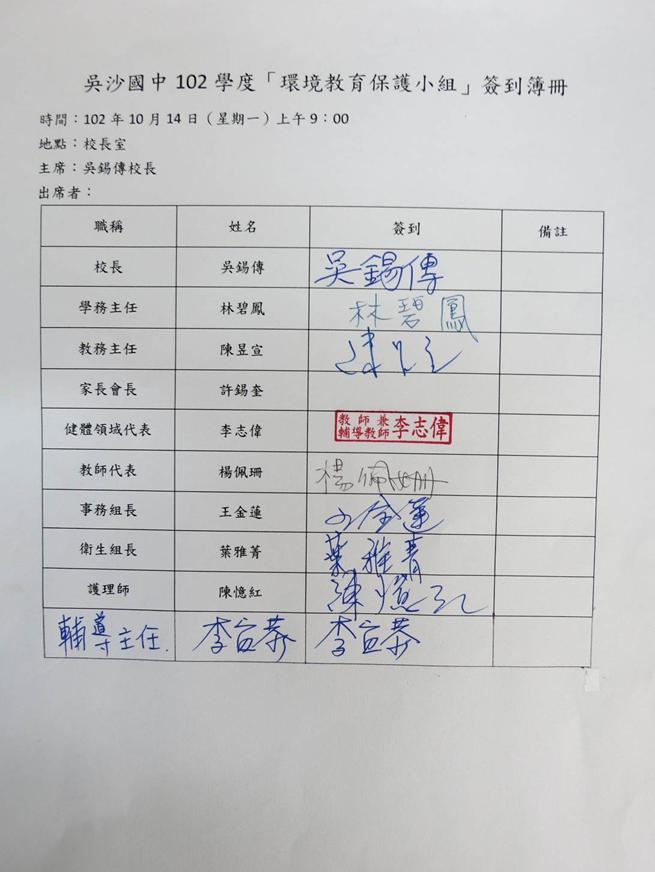 吳沙國中 102 學度「環境教育保護小組」簽到簿冊
時間：102 年 10 月 14 日（星期一）上午 9：00
地點：校長室
主席：吳錫傳校長
出席者：
職稱 姓名 簽到 備註
校長 吳錫傳 吳錫傳
學務主任 林碧鳳 林碧鳳
教務主任 陳昱宣
家長會長 許錫奎
健體領域代表 李志偉 教師兼輔導教師 李志偉
教師代表 楊佩珊 楊佩珊
事務組長 王金蓮 王金蓮
衛生組長 葉雅菁 葉雅菁
護理師 陳憶紅 陳憶紅
輔導主任. 李宜恭 李宜恭